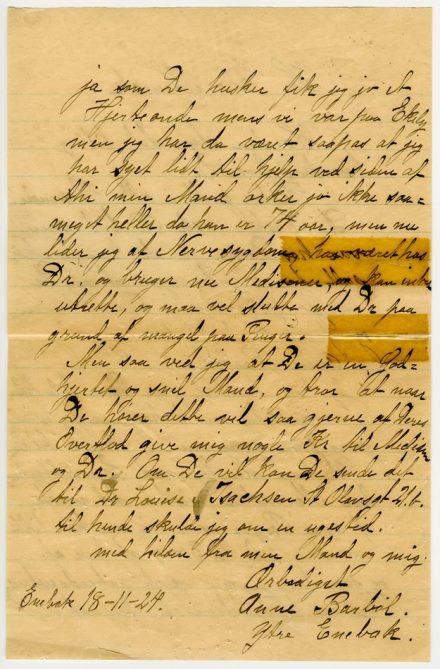 ja som De husker fik jeg jo et
Hjerteonde mens vi var paa Ekely
men jeg har da været saapas at jeg
har syet lidt til hjelp ved siden af
Ahi min Mand orker jo ikke saa=
meget heller da han er 74 aar, men nu
lider jeg af Nervesygdom, har været hos
Dr. og bruger nu Medisiner, og kan intet
utrette, og maa vel slutte med Dr paa
grund af mangel paa Penger.
Men saa ved jeg at De er en God=
hjertet og snil Mand, og tror at naar
De hører dette vil saa gjerne af Deres
Overflod give mig nogle Kr til Medisin
og Dr. Om De vil kan De sende det
til Dr Louise Isachsen St Olavsgt 21.b.
til hende skulde jeg om en ugestid.
med hilsen fra min Mand og mig.
Ærbødigst
Enebak 18-11-24. Anne Barbøl.
Ytre Enebak.